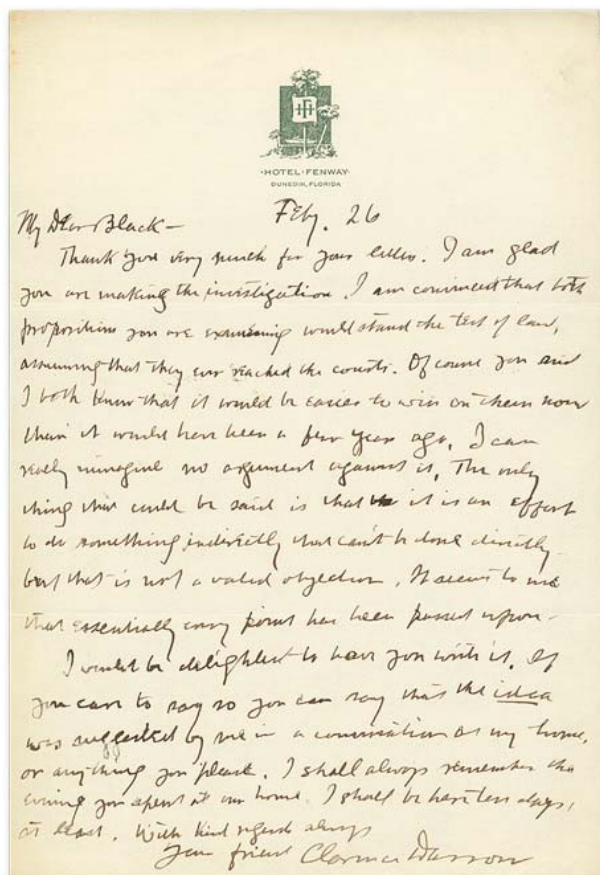 HF
·HOTEL·FENWAY·
DUNEDIN, FLORIDA
Feby. 26
My Dear Black—
Thank you very much for your letter. I am glad
you are making the investigation. I am convinced that both
propositions you are examining would stand the test of law,
assuming that they ever reached the courts. Of course you and
I both know that it would be easier to win on them now
than it would have been a few years ago. I can
really imagine no argument against it. The only
thing that could be said is that it is an effort
to do something indirectly that can't be done directly
but that is not a valid objection. It seems to me
that essentially every point has been passed upon—
I would be delighted to have you write it. If
you care to say so you can say that the idea
was suggested by me in a conversation at my home,
or anything you please. I shall always remember the
evening you spent at our home. I shall be here ten days,
at least. With kind regards always
Your friend Clarence Darrow